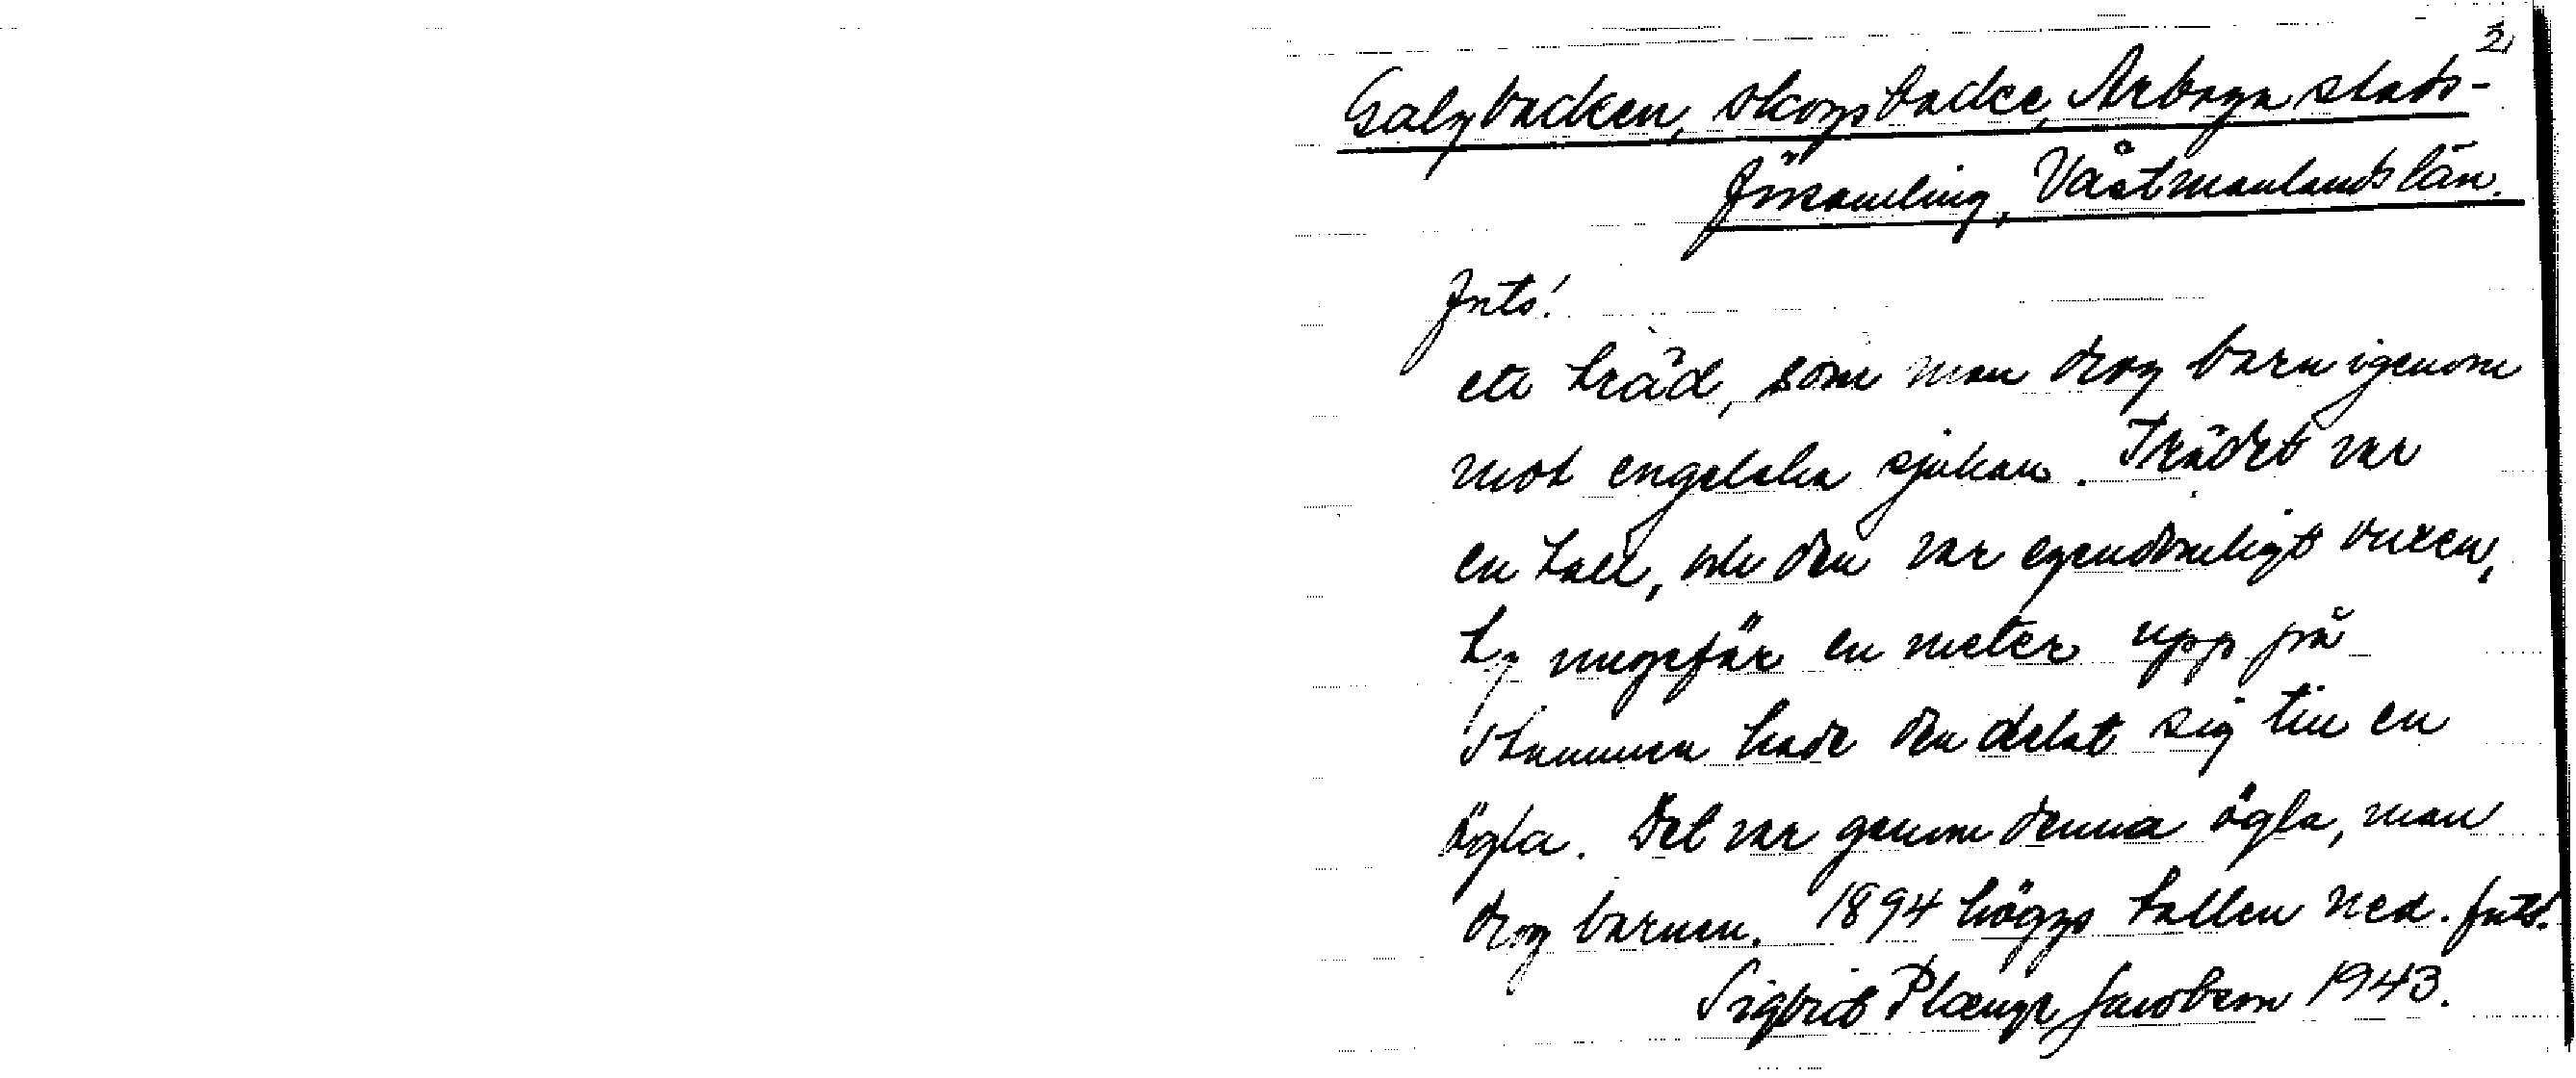 2,
Galgbacken, skogsbacke, Arboga stads-
församling, Västmanlands län.
Forts!
ett träd, som man drog barn igenom
mot engelska sjukan. Trädet var
en tall, och den var egendomligt vuxen,
ty ungefär en meter upp på
stammen hade den delat sig till en
ögla. Det var genom denna ögla, man
drog barnen. 1894 höggs tallen ned. Forts.
Sigfrid Jacobson 1943.